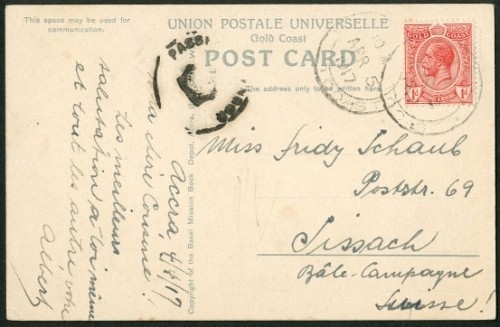 This space may be used for
communication.
UNION POSTALE UNIVERSELLE
Gold Coast
POST CARD
The address only to be written here.
GOLD COAST
1d 1d
APR 5
17
PASS
Accra, 4/4/17
Ma chère Cousine!
Les meilleurs
salutation à toi même
et tout les autre, votre
Albert
Copyright of the Basel Mission Book Depot, Accra
Miss Fridy Schaub
Poststr. 69
Sissach
Bâle-Campagne
Suisse!